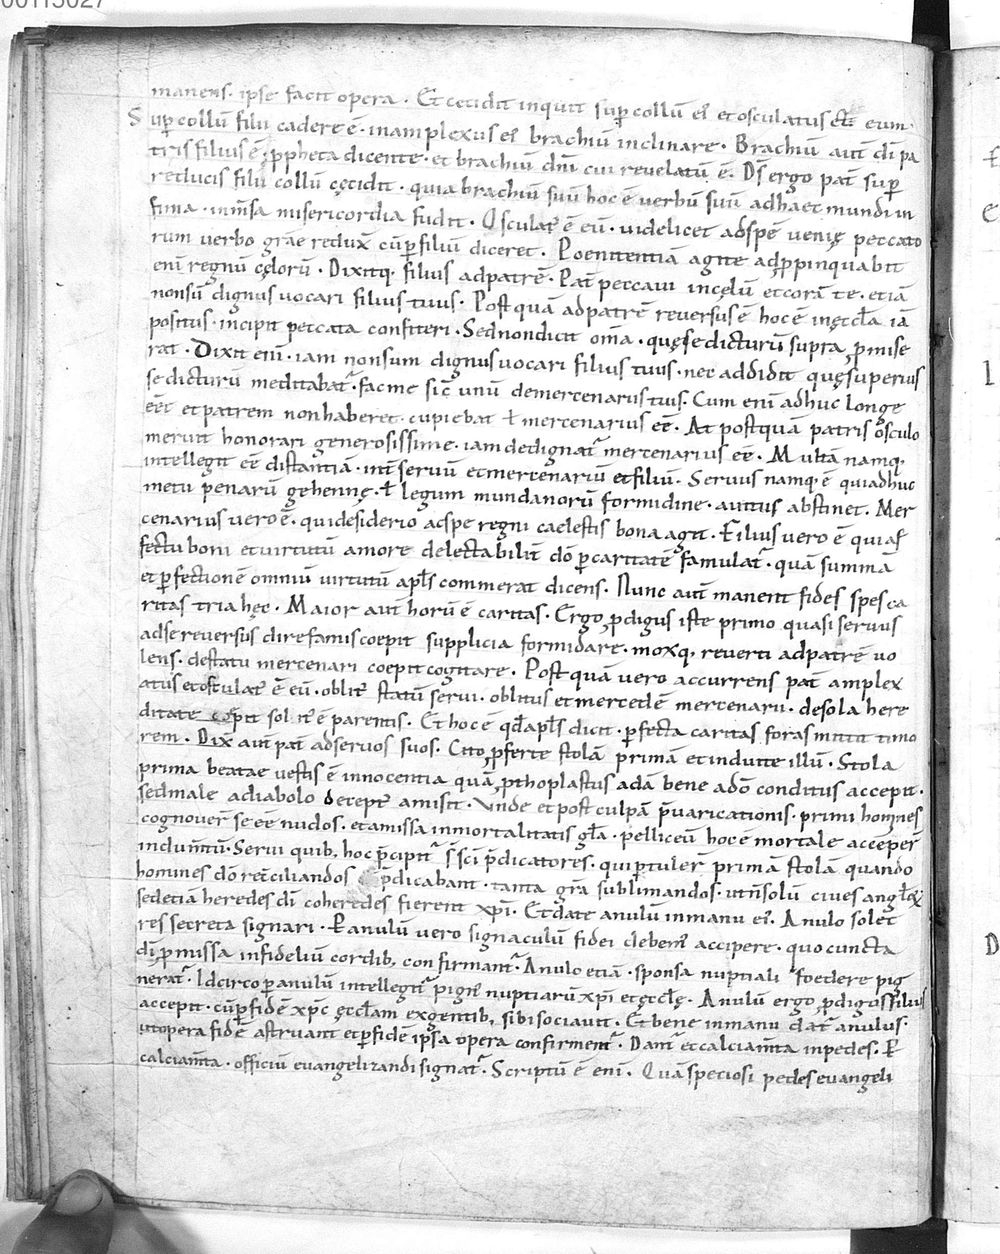 00115027
manens. ipse facit opera. Et cecidit inquit sup̄ collū ei᾽ et osculatus est eum.
Sup̄ collū filii cadere ē. inamplexus ei᾽ brachiū inclinare. Brachiū aut̄ dī pa
tris filius ē. ꝓpheta dicente. et brachiū dn̄i cui revelatū ē. Ds̄ ergo pat̄ sup̄
reducis filii collū cęcidit. quia brachiū suū hoc ē verbū suū adhaec mundi in
fima. inm̄sa misericordia fudit. Osculat᾽ ē eū. videlicet adspē venię peccato
rum verbo grāe redux̄ cūp̄ filiū diceret. Poenitentiā agite adꝓpinquabit
enī regnū cęlorū. Dixitq. filius adpatrē. Pat̄ peccavi incęlū etcorā te. etiā
nonsū dignus vocari filius tuus. Postquā adpatrē reversus ē hoc ē inęccl̄a iā
positus. incipit peccata confiteri. Sed non dicit om̄a. quę se dicturū supra ꝓmise
rat. Dixit enī. iam non sum dignus vocari filius tuus. nec addidit quę superius
se dicturū meditabat᾽. fac me sic̄ unū demercenariis tuis. Cum enī adhuc longe
eēt et patrem non haberet. cupiebat ł mercenarius eē. At postquā patris osculo
meruit honorari generosissime. iam dedignat᾽ mercenarius eē. Multā namq.
intellegit eē distantiā. int̄ servū et mercenariū et filiū. Servus namq. ē qui adhuc
metu p̄enarū gehennę. ł legum mundanorū formidine. avitiis abstinet. Mer
cenarius vero ē. qui desiderio acspe regni caelestis bona agit. Filius vero ē qui af
fectu boni et virtutū amore delectabilit̄ dō p̄ caritatē famulat᾽. quā summā
et p̄fectionē omniū virtutū apl̄s commerat dicens. Nunc aut̄ manent fides spes ca
ritas tria hęc. Maior aut̄ horū ē caritas. Ergo ꝓdigus iste primo quasi servus
adse reversus dire famis coepit supplicia formidare. moxq, reverti adpatrē vo
lens. destatu mercenarii coepit cogitare. Postquā vero accurrens pat̄ amplex
atus et osculat᾽ ē eū. oblit᾽ statū servi. oblitus et mercedē mercenarii. desola here
ditate cępit sollit᾽ ē parentis. Et hoc ē qd̄ apl̄s dicit. p̄fecta caritas foras mittit timo
rem. Dix̄ aut̄ pat̄ adservos suos. Cito ꝓferte stolā primā et induite illū. Stola
prima beatae vestis ē innocentia quā ꝓthoplastus adā bene adō conditus accepit.
sed male adiabolo decept᾽ amisit. Unde et post culpā p̄varicationis. primi homines
cognover̄ se eē nudos. et amissa inmortalitatis gl̄a. pelliceū hoc ē mortale acceper̄
indum̄tū. Servi quib, hoc p̄cipit᾽ s̄ sc̄i p̄dicatores. qui ptuler̄ primā stolā quando
homines dō rec̄ciliandos p̄dicabant. tanta grā sublimandos. utn̄ solū cives angl̄x
sedetiā heredes dī coheredes fierent xp̄i. Et date anulū inmanu ei᾽. Anulo solet̄
res secreta signari. P anulū vero signaculū fidei debem᾽ accipere. quo cuncta
dī ꝓmissa infideliū cordib, confirmant᾽. Anulo etiā. sponsa nuptiali foedere pig
nerat᾽. Idcirco p̄ anulū intellegit᾽ pign᾽ nuptiarū xp̄i et ęccl̄ę. Anulū ergo ꝓdigus filius
accepit. cūp̄ fidē xp̄c ęccl̄am exgentib, sibi sociavit. Et bene inmanu dat᾽ anulus.
ut opera fidē astruant et p̄ fidē ipsa opera confirment᾽. Dant᾽ et calciam̄ta inpedes. P
calciam̄ta. officiū evangelizandi signat᾽. Scriptū ē enī. Quā speciosi pedes evangeli